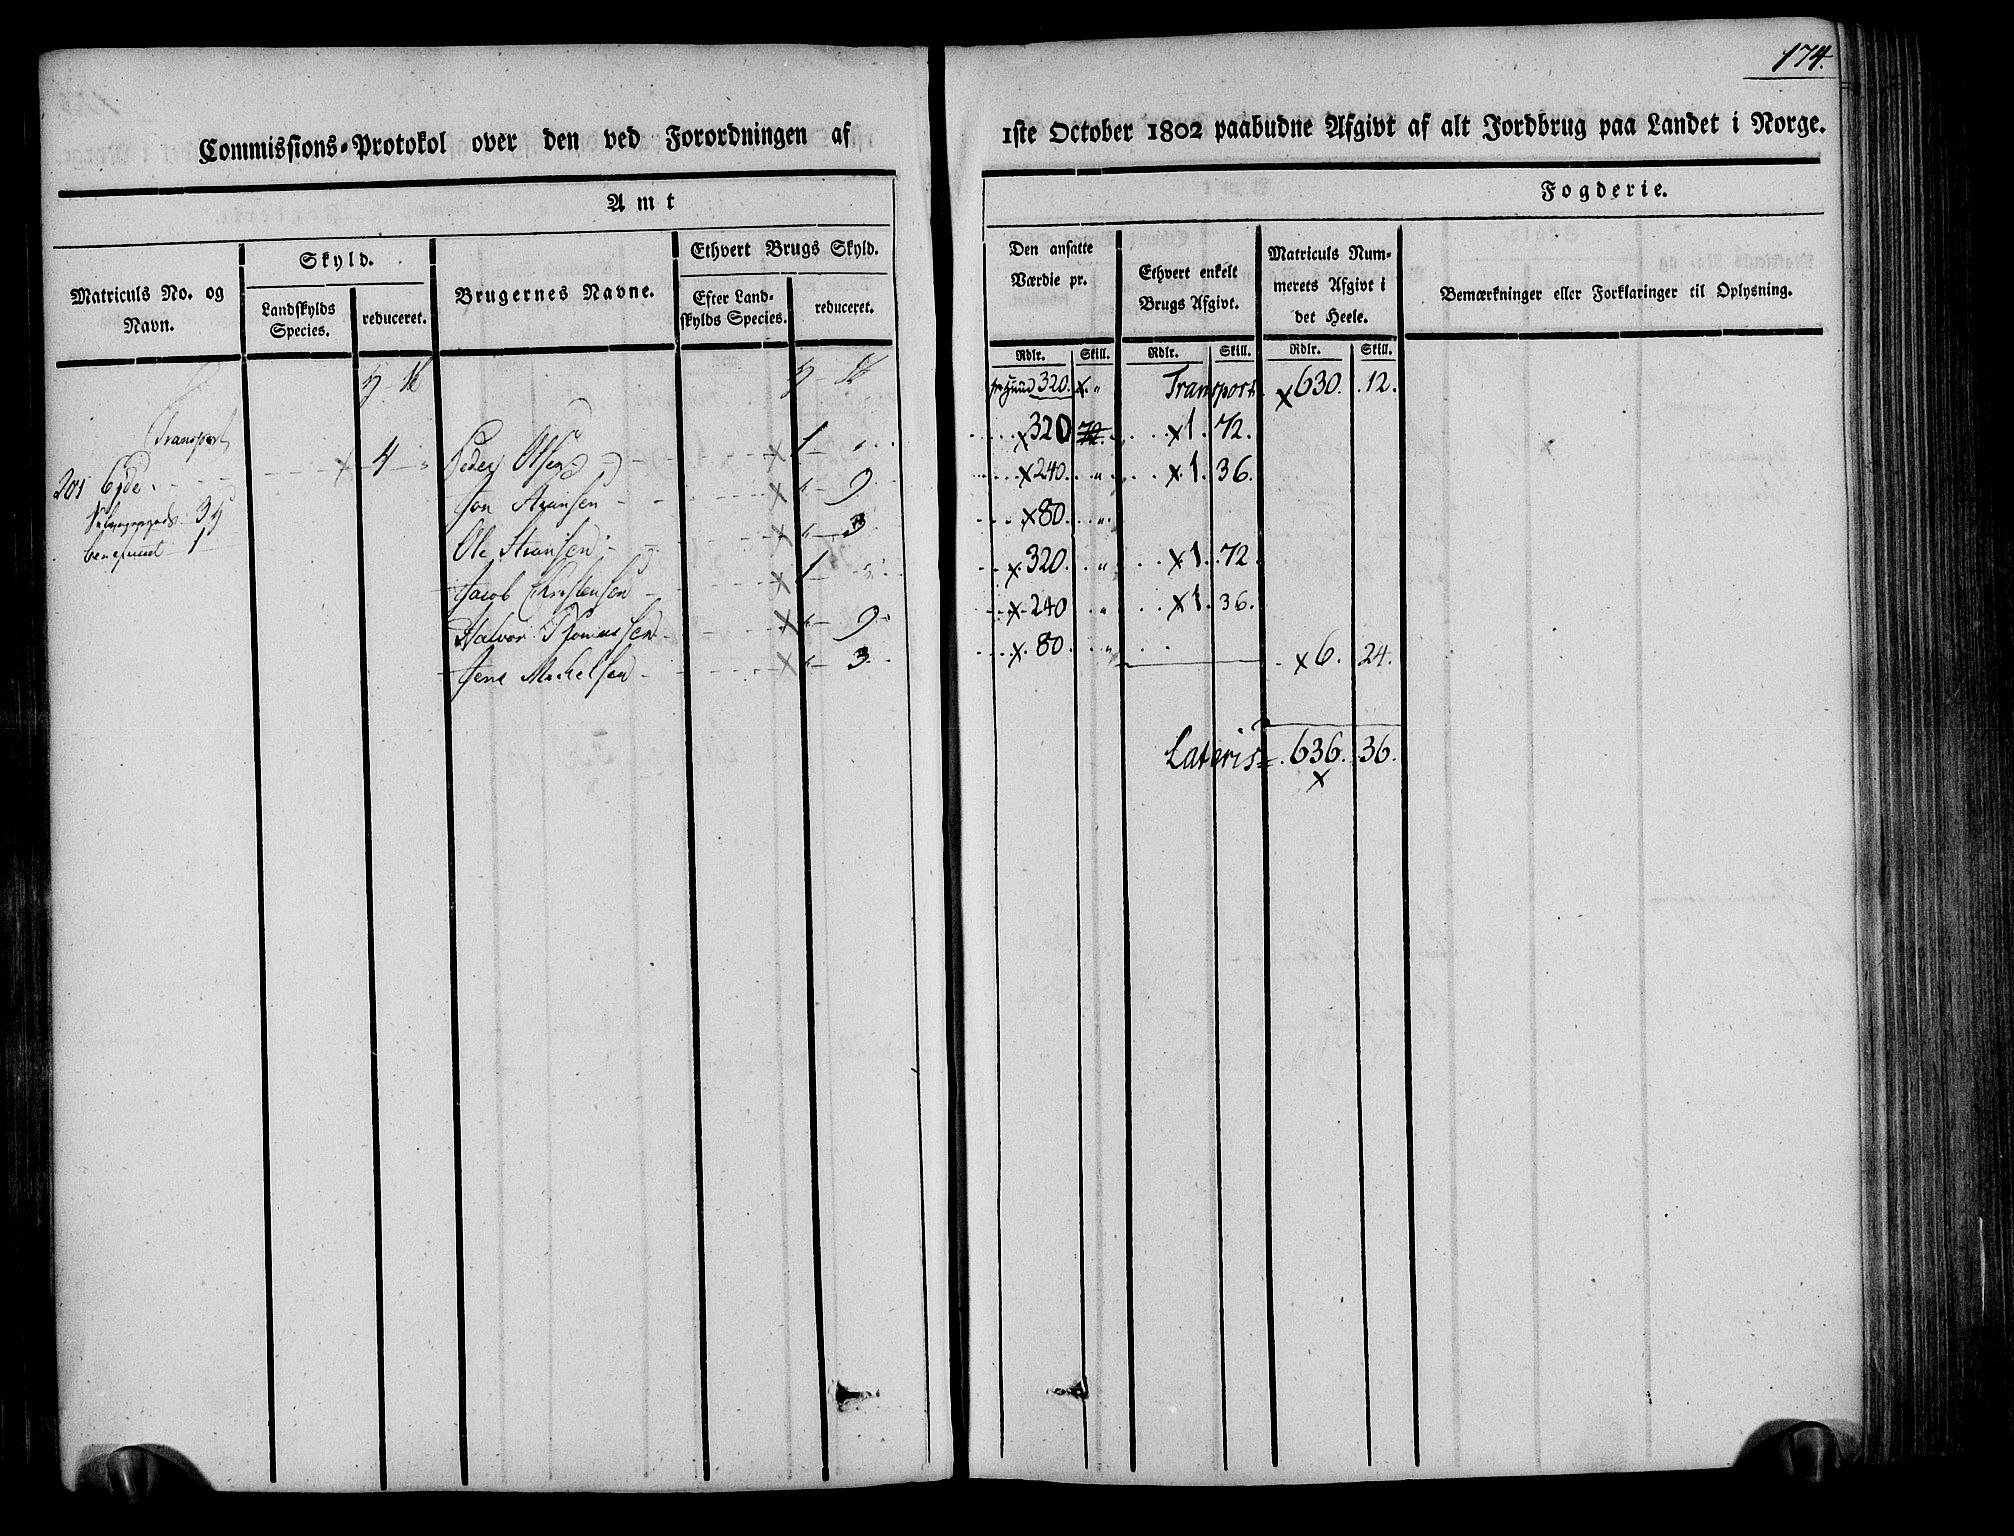 174.
Commissions-Protokol over den ved Forordningen af
1ste October 1802 paabudne Afgivt af alt Jordbrug paa Landet i Norge.
Amt
Fogderie.
Matriculs No. og Navn.
Skyld.
Landskylds Species.
reduceret.
Brugernes Navne.
Ethvert Brugs Skyld.
Efter Landskylds Species.
reduceret.
Den ansatte Værdie pr.
Ethvert enkelt Brugs Afgivt.
Matriculs Nummerets Afgivt i det Heele.
Bemærkninger eller Forklaringer til Oplysning.
Rdlr. Skill. Rdlr. Skill. Rdlr. Skill.
320. Transport x 630. 12.
Transport
201 Eyde x 4 Peder Olsen x 1 x 320 x 1. 72.
Jon x " 9 x 240. " x 1. 36.
benefineret 1 Ole x " 3 x 80. "
Jacob Christensen x 1 x 320. " x 1. 72.
Halvor Thomessen x " 9 x 240 " x 1. 36.
Jens Michelsen x " 3 x 80. " x 6. 24.
Lateris 636. 36.
x